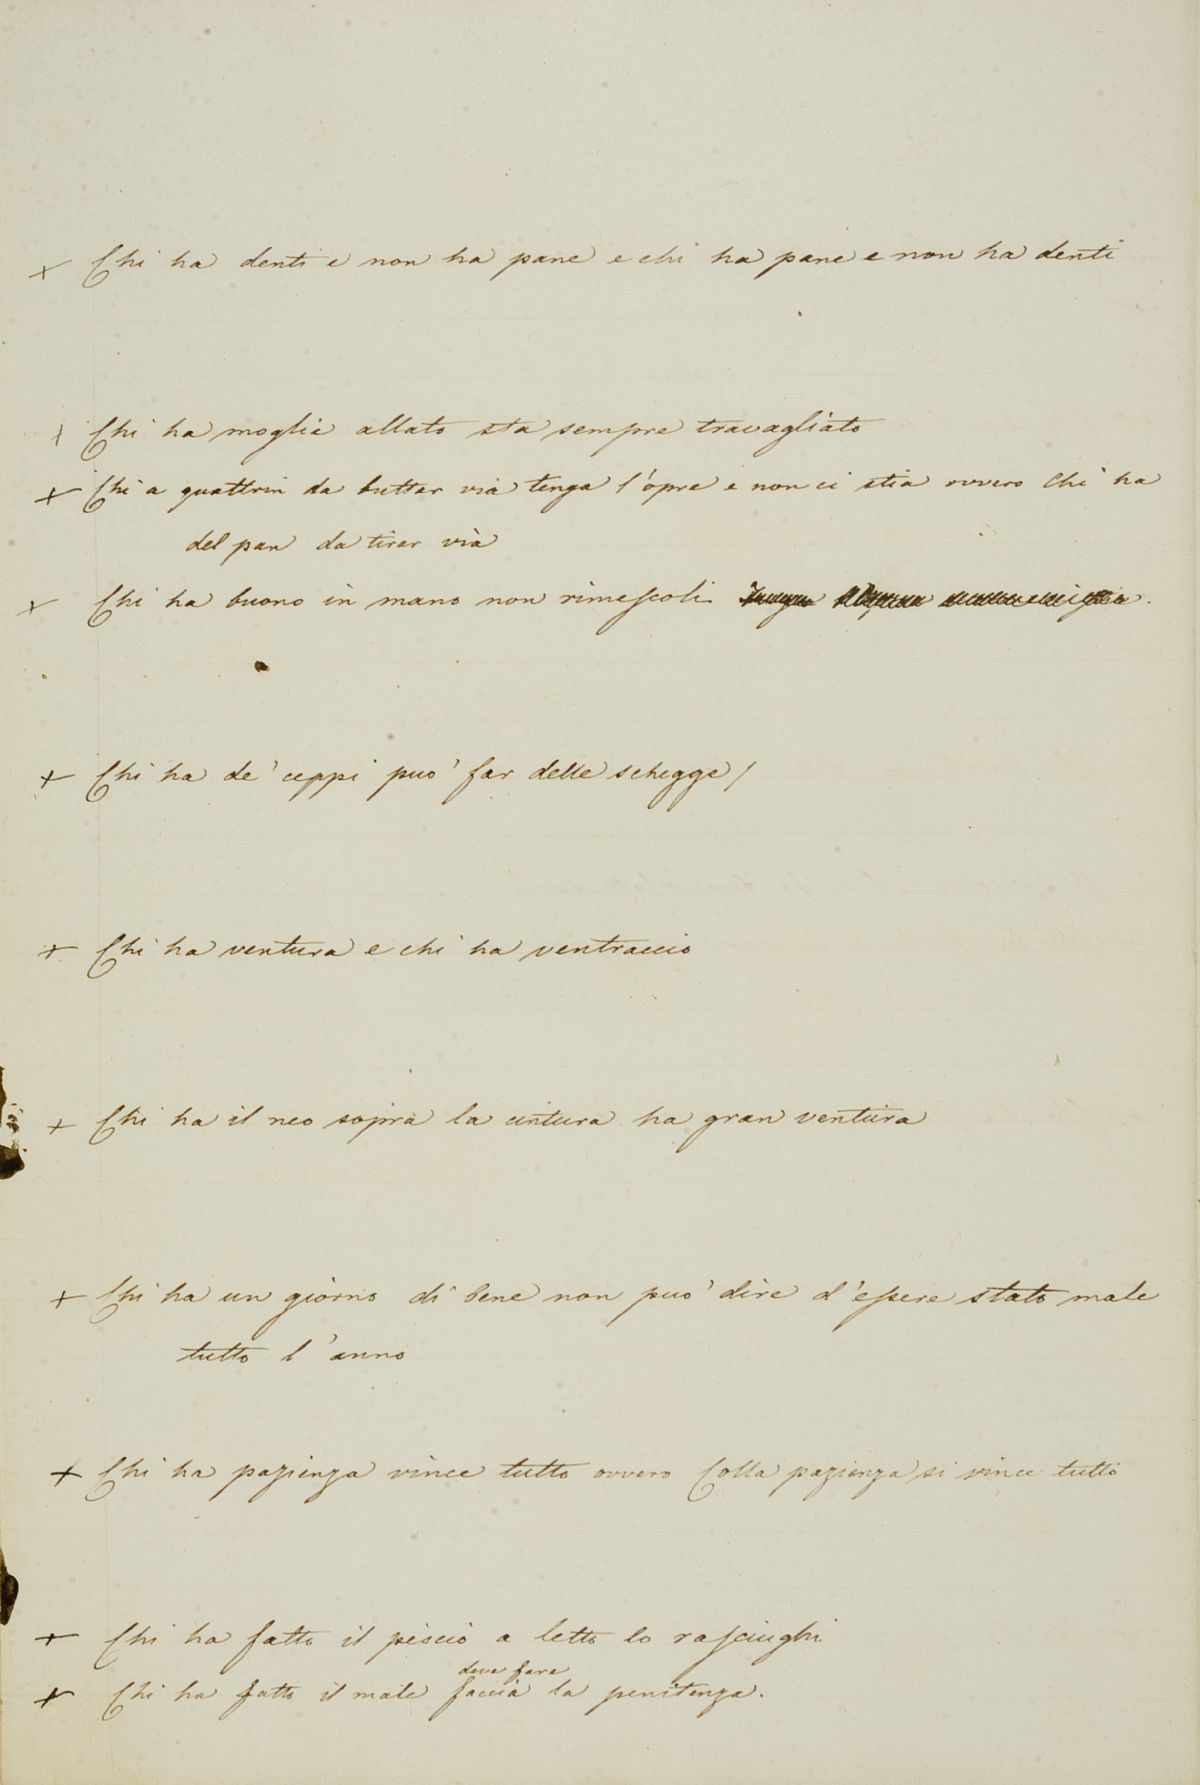 + Chi ha denti e non ha pane e chi ha pane e non ha denti
+ Chi ha moglie allato sta sempre travagliato
+ Chi a quattrin da buttar via tenga l'opre e non ci stia ovvero Chi ha
del pan da tirar via
+ Chi ha buono in mano non rimescoli
+ Chi ha de' ceppi può far delle schegge /
+ Chi ha ventura e chi ha ventraccio
+ Chi ha il neo sopra la cintura ha gran ventura
+ Chi ha un giorno di bene non può dire d'essere stato male
tutto l'anno
+ Chi ha pazienza vince tutto ovvero Colla pazienza si vince tutto
+ Chi ha fatto il piscio a letto lo rasciughi
deve fare
+ Chi ha fatto il male faccia la penitenza.